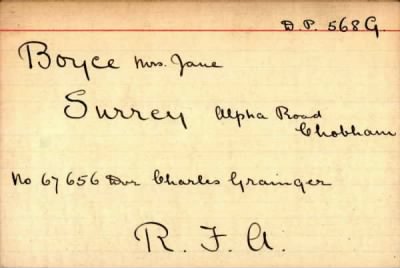 D.P. 568G.
Boyce Mrs. Jane
Surrey Alpha Road
Chobham
No 67656 Dvr Charles Grainger
R. F. A.